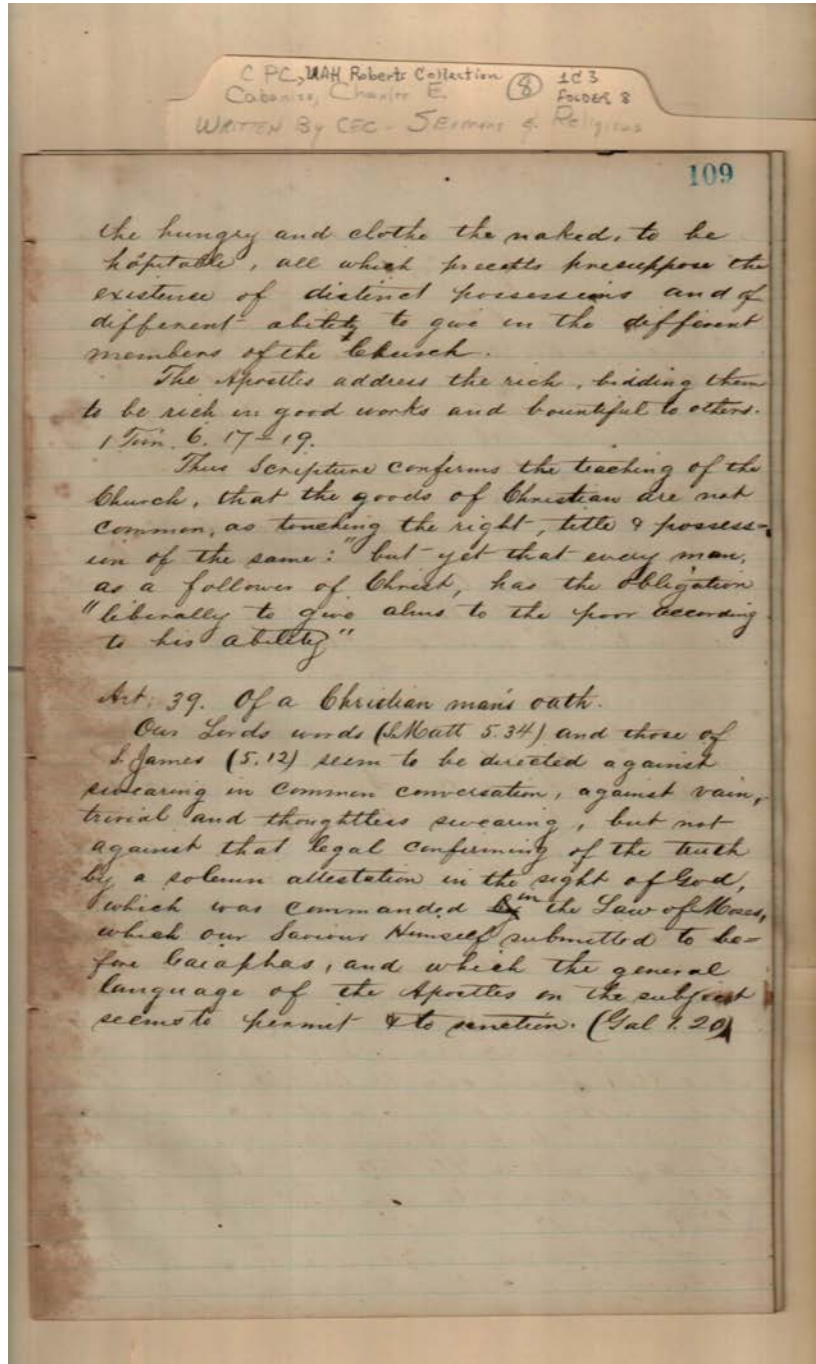 C PC, UAH Roberts Collection 8 1C3
Cabaniss, Charles E. FOLDER 8
WRITTEN By CEC - SERMONS & Religious
109
the hungry and clothe the naked, to be
hospitable, all which precepts presuppose the
existence of distinct possessions and of
different ability to give in the different
members of the Church.
The Apostles address the rich, bidding them
to be rich in good works and bountiful to others.
1 Tim. 6. 17-19.
Thus Scripture confirms the teaching of the
Church, that the goods of Christian are not
common, as touching the right, title & possess-
ion of the same:" but yet that every man,
as a follower of Christ, has the obligation
"liberally to give alms to the poor according
to his ability"
Art. 39. Of a Christian man's oath.
Our Lords words (S. Matt 5.34) and those of
S. James (5.12) seem to be directed against
swearing in common conversation, against vain,
trivial and thoughtless swearing, but not
against that legal confirming of the truth
by a solemn attestation in the sight of God,
which was commanded in the Law of Moses,
which our Saviour Himself submitted to be=
fore Caiaphas, and which the general
language of the Apostles on the subject
seems to permit & to sanction. (Gal 1.20)